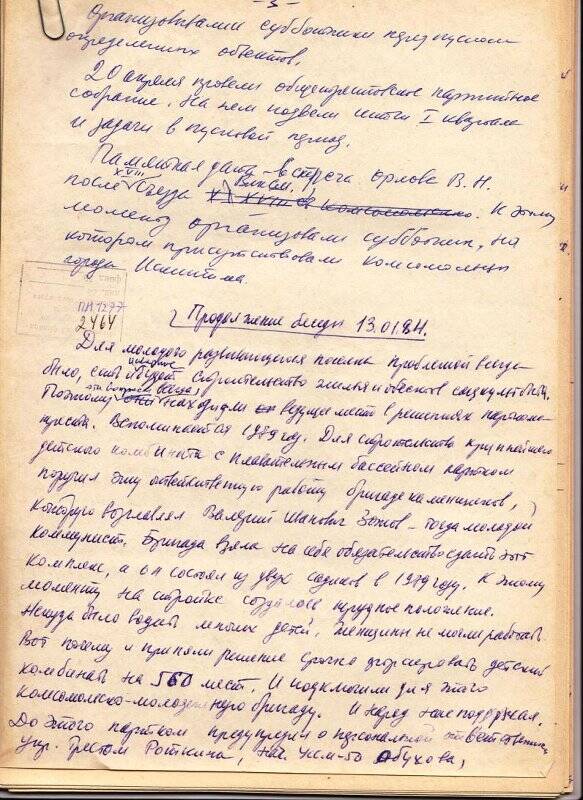 - 3 -
Организовывали субботники перед пуском
определенных объектов.
20 апреля провели общетрестовское партийное
собрание. На нем подвели итоги I квартала
и задачи в пусковой период.
Памятная дата - встреча Орлова В.Н.
после XVIII съезда ВЛКСМ. К этому
моменту организовали субботник, на
котором присутствовали комсомольцы
города Искитима.
ПИ 1297
2464
Продолжение беседы 13.01.84.
Для молодого развивающегося поселка проблемой всегда
было, есть и будет строительство жилья и объектов соцкультбыта.
Поэтому эти вопросы всегда находили ведущее место в решениях парткома
треста. Вспоминается 1979 год. Для строительства крупнейшего
детского комбината с плавательным бассейном партком
поручил эту ответственную работу бригаде каменщиков,
которую возглавлял Валерий Иванович - тогда молодой
коммунист. Бригада взяла на себя обязательство сдать этот
комплекс, а он состоял из двух садиков в 1979 году. К этому
моменту на стройке создалось трудное положение.
Некуда было водить многих детей, женщины не могли работать
Вот поселку и приняли решение срочно
комбинат на 560 мест. И подключили для этого
комсомольско-молодежную бригаду. И наряд не поддержал.
До этого партком предупредил о персональной ответственности
упр. трестом Роткина, нач. УСМ-50 Обухова,